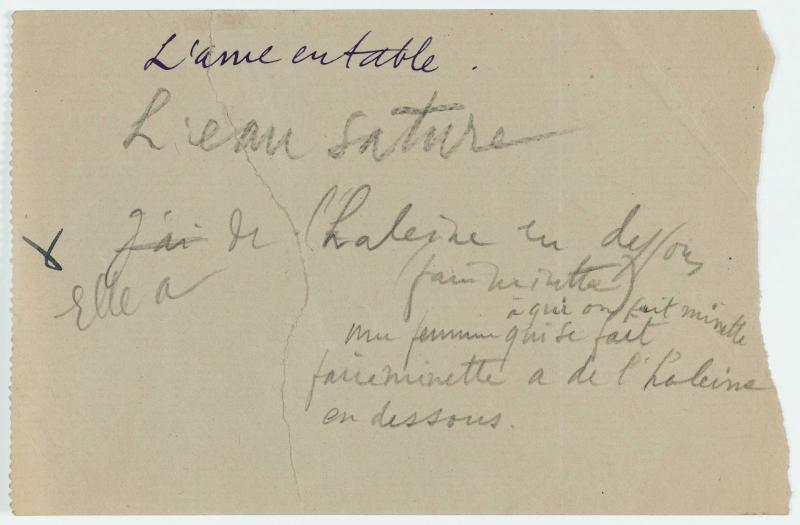 L'ame entable.
L'eau sature
J'ai de l'haleine en dessous
Elle a
(faire minette)
à qui on fait minette
une femme qui se fait
faire minette a de l'haleine
en dessous.